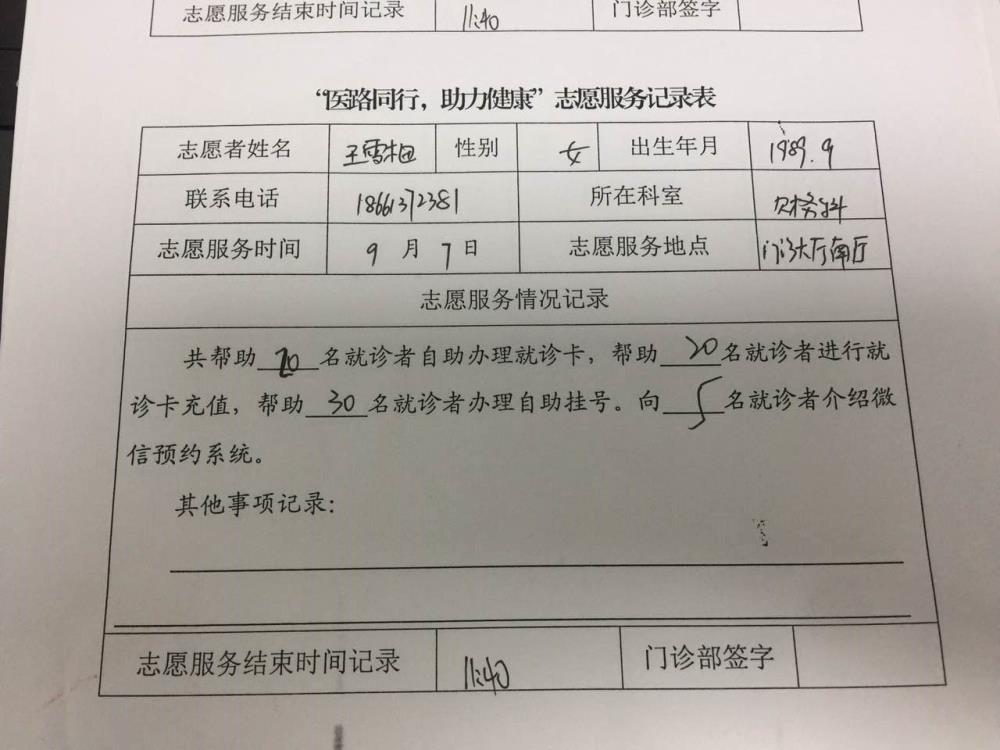 志愿服务结束时间记录 11:40 门诊部签字
“医路同行，助力健康”志愿服务记录表
志愿者姓名 王雪相 性别 女 出生年月 1989.9
联系电话 18661372381 所在科室 财务科
志愿服务时间 9 月 7 日 志愿服务地点 门诊大厅南厅
志愿服务情况记录
共帮助 20 名就诊者自助办理就诊卡，帮助 20 名就诊者进行就
诊卡充值，帮助 30 名就诊者办理自助挂号。向 5 名就诊者介绍微
信预约系统。
其他事项记录：
志愿服务结束时间记录 11:40 门诊部签字